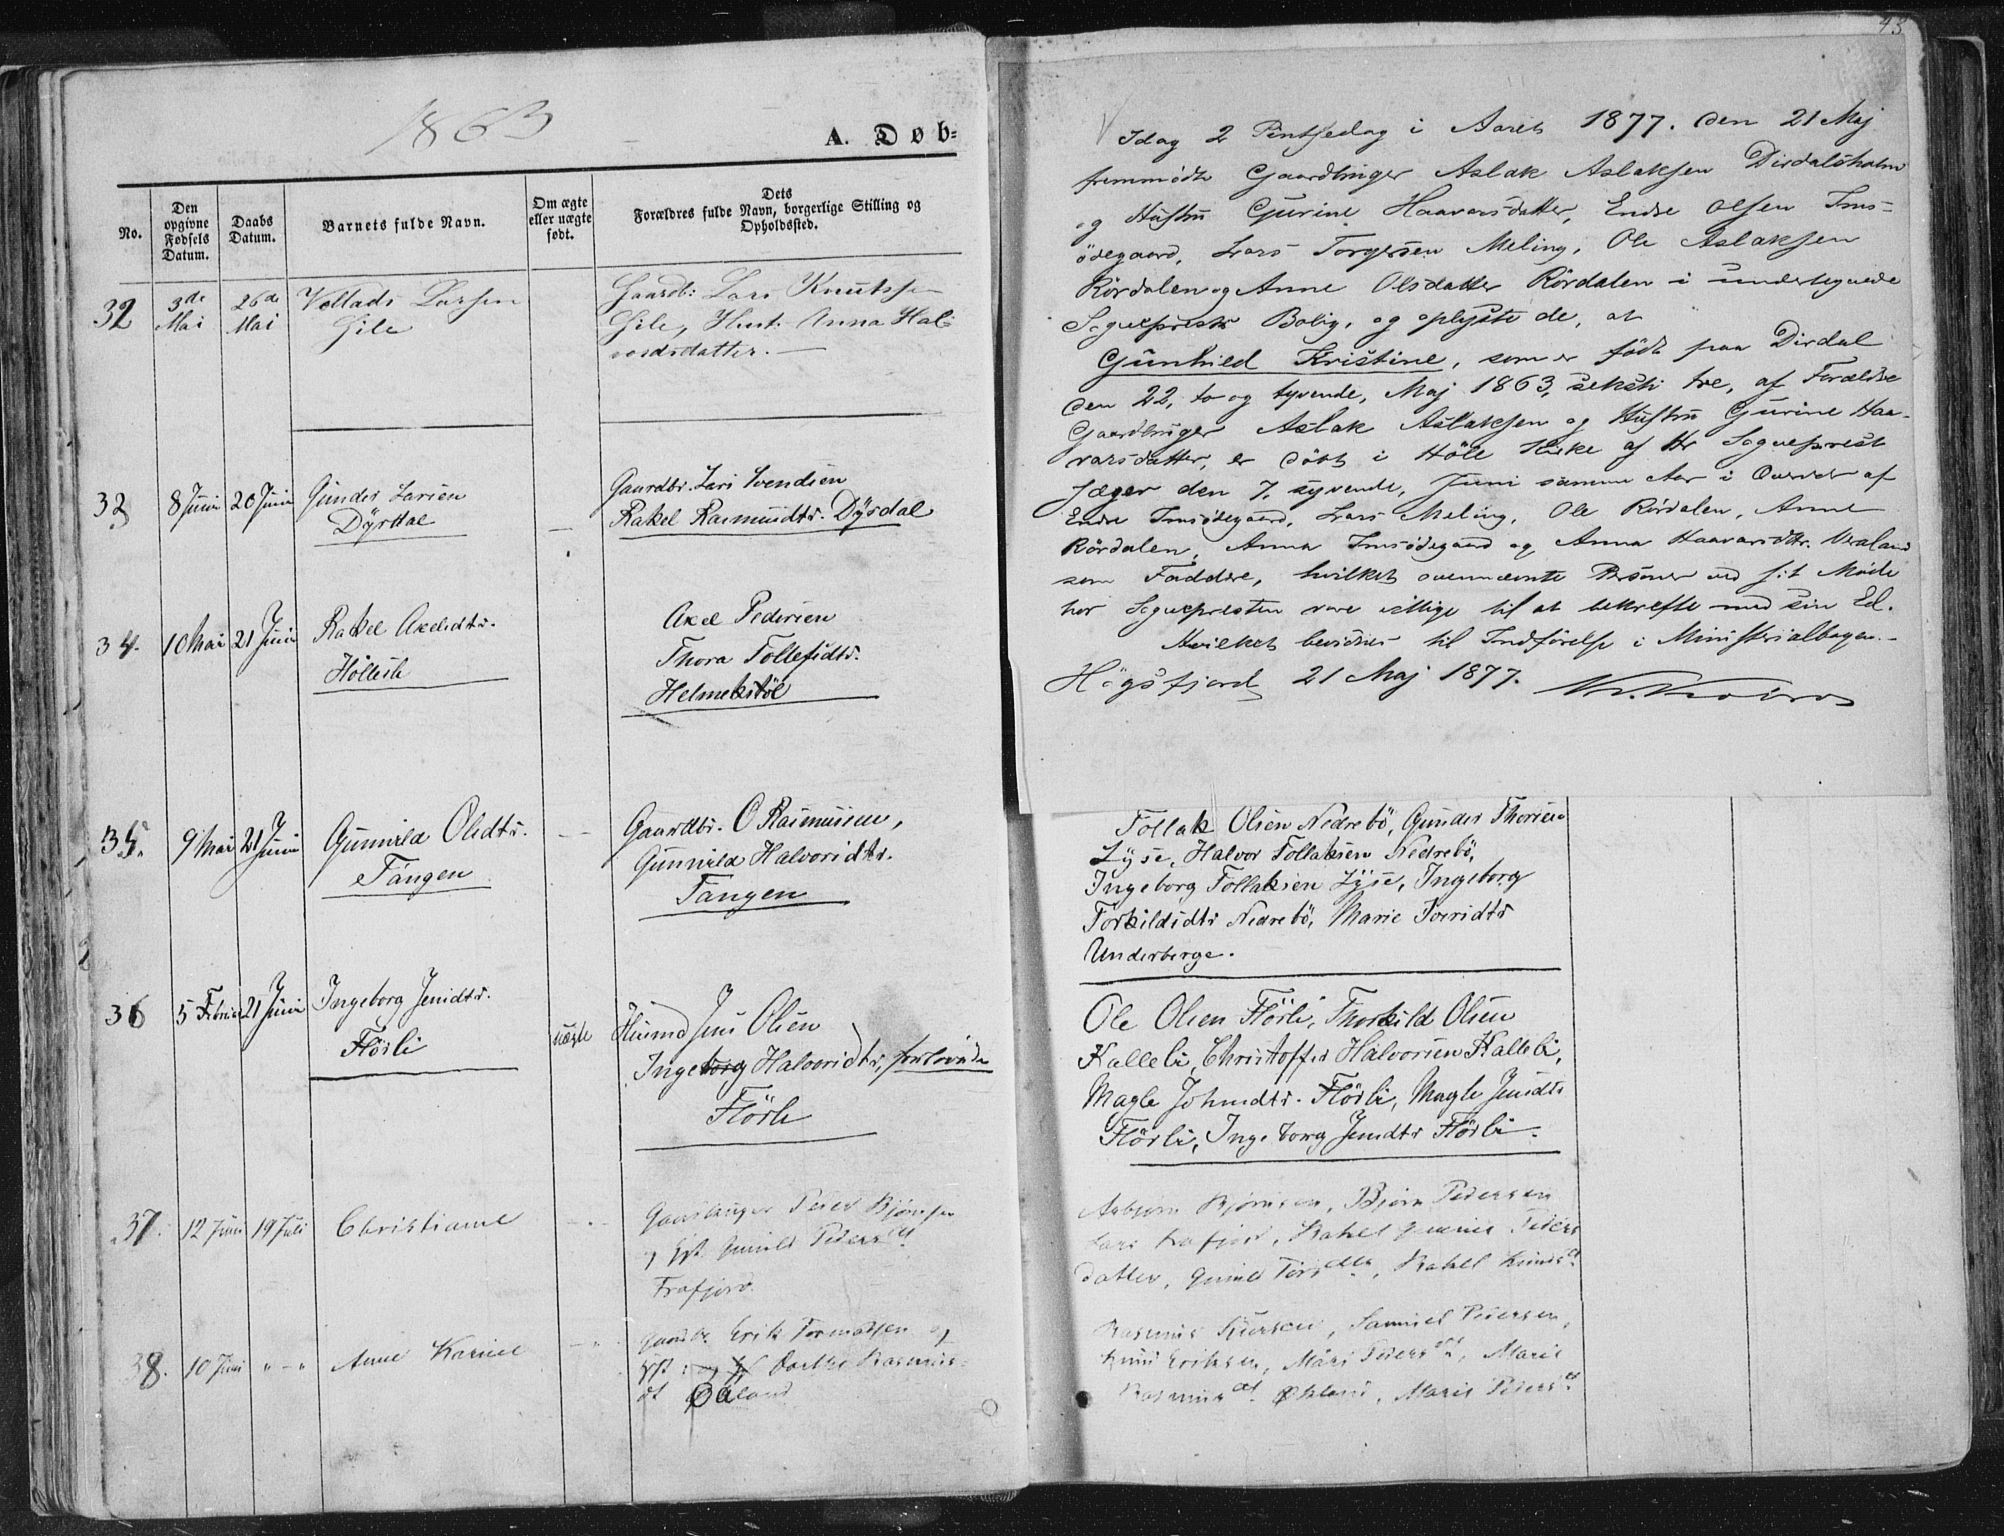 1863
A. Døb=
No.
Den opgivne Fødsels Datum.
Daabs Datum.
Barnets fulde Navn.
Om ægte eller uægte født.
Dets Forældres fulde Navn, borgerlige Stilling og Opholdssted.
32
3de Mai
26de Mai
Larsen
Gaardb: Lars Knutsen
Hust. Anna Hal-
vordsdatter. —
33
8 Juni
20 Juni
Gunder Larsen
Dÿrdal
—
Gaardbr. Lars Svendsen
Rakel Rasmusdtr. Dÿrdal
34.
10 Mai
21 Juni
Rakel Axelsdtr.
Høllesli
Axel Pedersen
Thora Tollefsdtr.
Helmikstøl
35.
9 Mai
21 Juni
Gunnild Olsdtr.
Tangen
— —
Gaardbr. O Rasmussen,
Gunnild Halvorsdtr.
Tangen
36
5 Februar
21 Juni
Ingeborg Jensdtr.
Flörli
uægte
Huusmd Jens Olsen
Ingeborg Halvorsdtr, forlovede
Flörli
37.
12 Juni
19 Juli
Christiane
Gaardbruger Peder Bjørnsen
og Hst. Gunild Pedersdt
Frafjord.
38.
10 Juni
" — "
Anne Karine
Gaardbr. Erik Tormodsen og
Hst: og Dorthe Rasmus-
dt Økland
43
Idag 2 Pintsedag i Aaret 1877. den 21 Maj
fremmødte Gaardbruger Aslak Aslaksen Dirdalsholm
og Hustru Gurine Haavarsdatter, Endre Olsen Ims-
ödegaard, Lars Torgersen Meling, Ole Aslaksen
Rördalen og Anne Olsdatter Rördalen i undertegnede
Sogneprests Bolig, og oplyste de, at
Gunhild Kristine, som er født paa Dirdal
den 22, to og tyvende, Maj 1863, seksti tre, af Forældre
Gaardbruger Aslak Aslaksen og Hustru Gurine Haa-
varsdatter, er döbt i Höle Kirke af Hr Sogneprest
Jæger den 7, syvende, Juni samme Aar i Overvær af
Endre Imsødegaard, Lars Meling, Ole Rördalen, Anne
Rördalen, Anna Imsødegaard og Anna Haavarsdtr. Veraland
som Faddere, hvilket ovennævnte Personer ved sit Møde
hos Sognepresten vare villige til at bekræfte med sin Ed.
Hvilket bevidnes til Indförelse i Ministerialbogen.-
Högsfjord 21 Maj 1877.
Tollak Olsen Nedrebö, Gunder Thorsen
Lÿse, Halvor Tollaksen Nedrebö,
Ingeborg Tollaksen Lÿse, Ingeborg
Torkildsdtr Nedrebö, Marie Torrisdtr
Underberge.
Ole Olsen Flörli, Thorkild Olsen
Kalleli, Christoffer Halvorsen Kalleli,
Magle Johnsdtr. Flörli, Magle Jensdtr
Flörli, Ingeborg Jensdtr Flörli.
Asbjørn Bjørnsen, Bjørn Pedersen
Lars Frafjord, Rakel Gurine Peders
datter, Gunild Torsdtr, Rakel Knudsdt
Rasmus Sjursen, Samuel Pedersen,
Knud Eriksen, Mari Pedersdt, Marie
Rasmusdt Økland, Marie Pedersdt